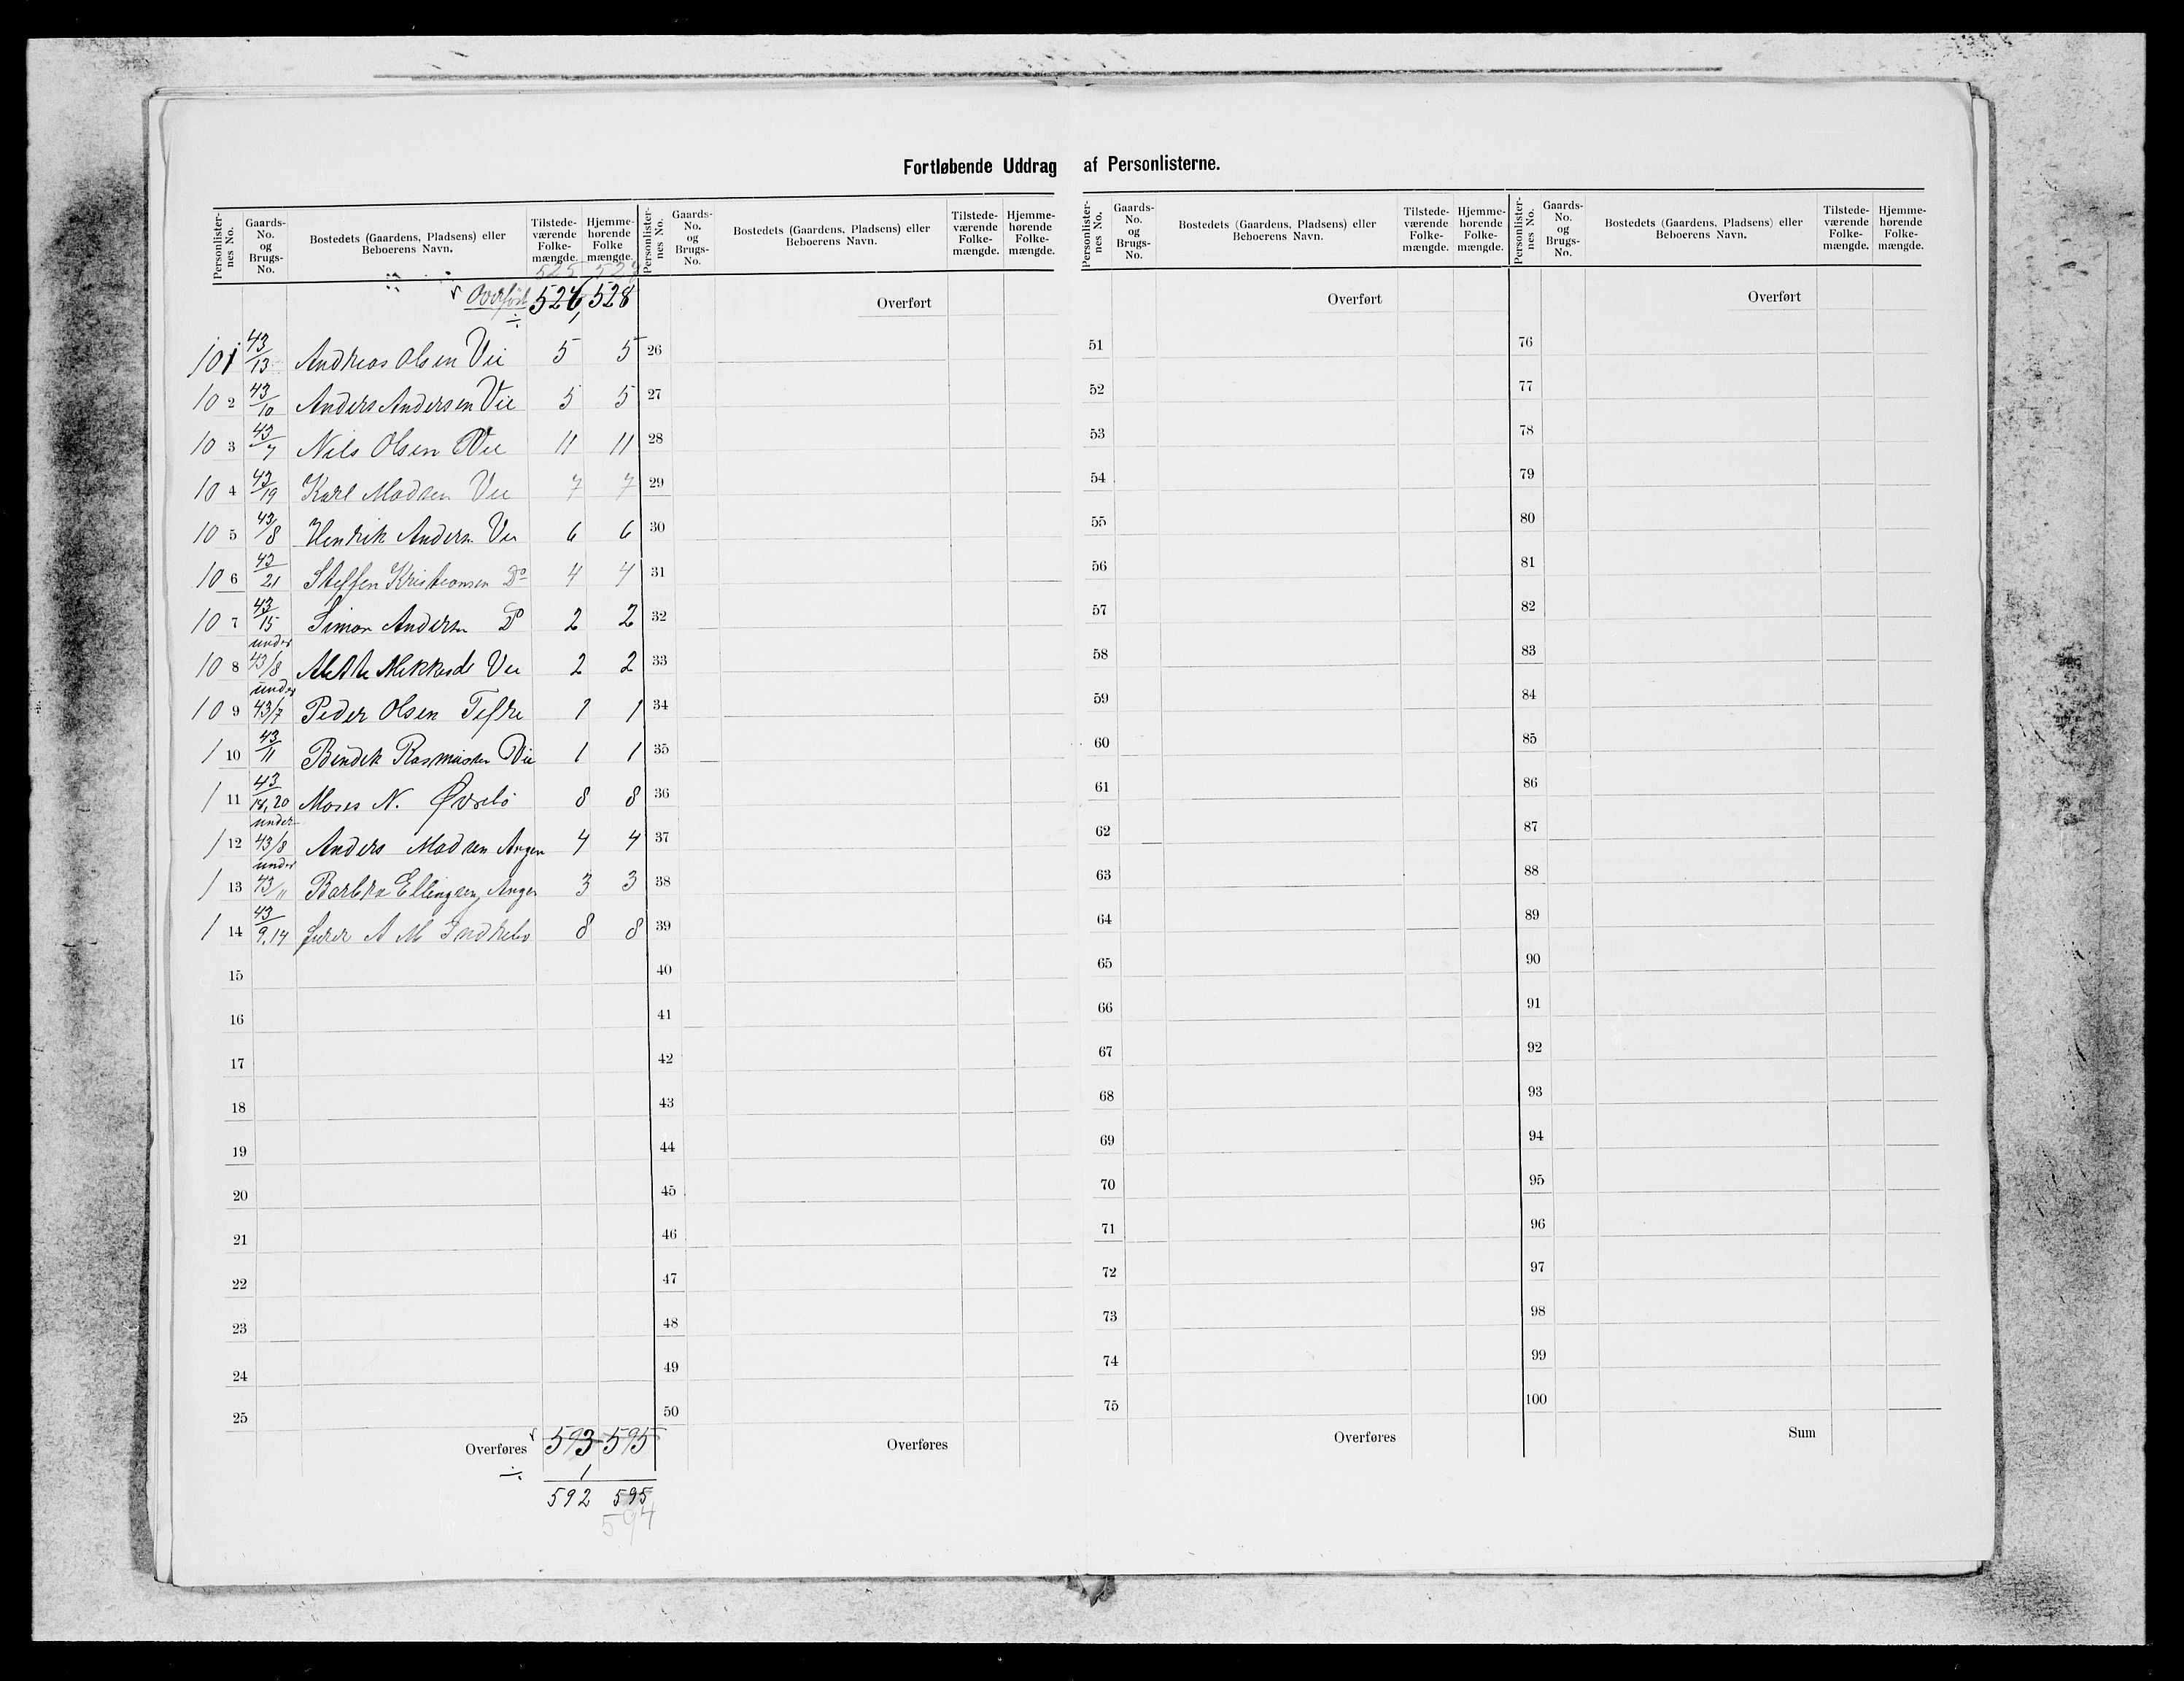 Fortløbende Uddrag af Personlisterne.
Personlister-nes No. Gaards-No. og Brugs-No. Bostedets (Gaardens, Pladsens) eller Beboerens Navn. Tilstede-værende Folke-mængde. Hjemme-hørende Folke mængde.
525 527
Overført 526 528
101 43/13 Andreas Olsen Vie 5 5
102 43/10 Anders Andersen Vie 5 5
103 43/7 Nils Olsen Vie 11 11
104 43/19 Karl Madsen Vie 7 7
105 43/8 Henrik Andersn Vie 6 6
106 43/21 Steffen Kristiansen Do 4 4
107 43/15 Simon Andersn Do 2 2
108 under 43/8 Mikkelsd Vie 2 2
109 under 43/7 Peder Olsen Tefre 1 1
110 43/11 Bendik Rasmussen Vie 1 1
111 43/18, 20 Moses N. Øvrebö 8 8
112 under 43/8 Anders Madsen Angen 4 4
113 under 43/" Barbra Ellingsen, Angen 3 3
114 43/9.14 A M Indrebö 8 8
15
16
17
18
19
20
21
22
23
24
25
Overføres 593 595
÷ 1
592 595
594
Personlister-nes No. Gaards-No. og Brugs-No. Bostedets (Gaardens, Pladsens) eller Beboerens Navn. Tilstede-værende Folke-mængde. Hjemme-hørende Folke-mængde.
Overført
26
27
28
29
30
31
32
33
34
35
36
37
38
39
40
41
42
43
44
45
46
47
48
49
50
Overføres
Personlister-nes No. Gaards-No. og Brugs-No. Bostedets (Gaardens, Pladsens) eller Beboerens Navn. Tilstede-værende Folke-mængde. Hjemme-hørende Folke-mængde.
Overført
51
52
53
54
55
56
57
58
59
60
61
62
63
64
65
66
67
68
69
70
71
72
73
74
75
Overføres
Personlister-nes No. Gaards-No. og Brugs-No. Bostedets (Gaardens, Pladsens) eller Beboerens Navn. Tilstede-værende Folke-mængde. Hjemme-hørende Folke-mængde.
Overført
76
77
78
79
80
81
82
83
84
85
86
87
88
89
90
91
92
93
94
95
96
97
98
99
100
Sum